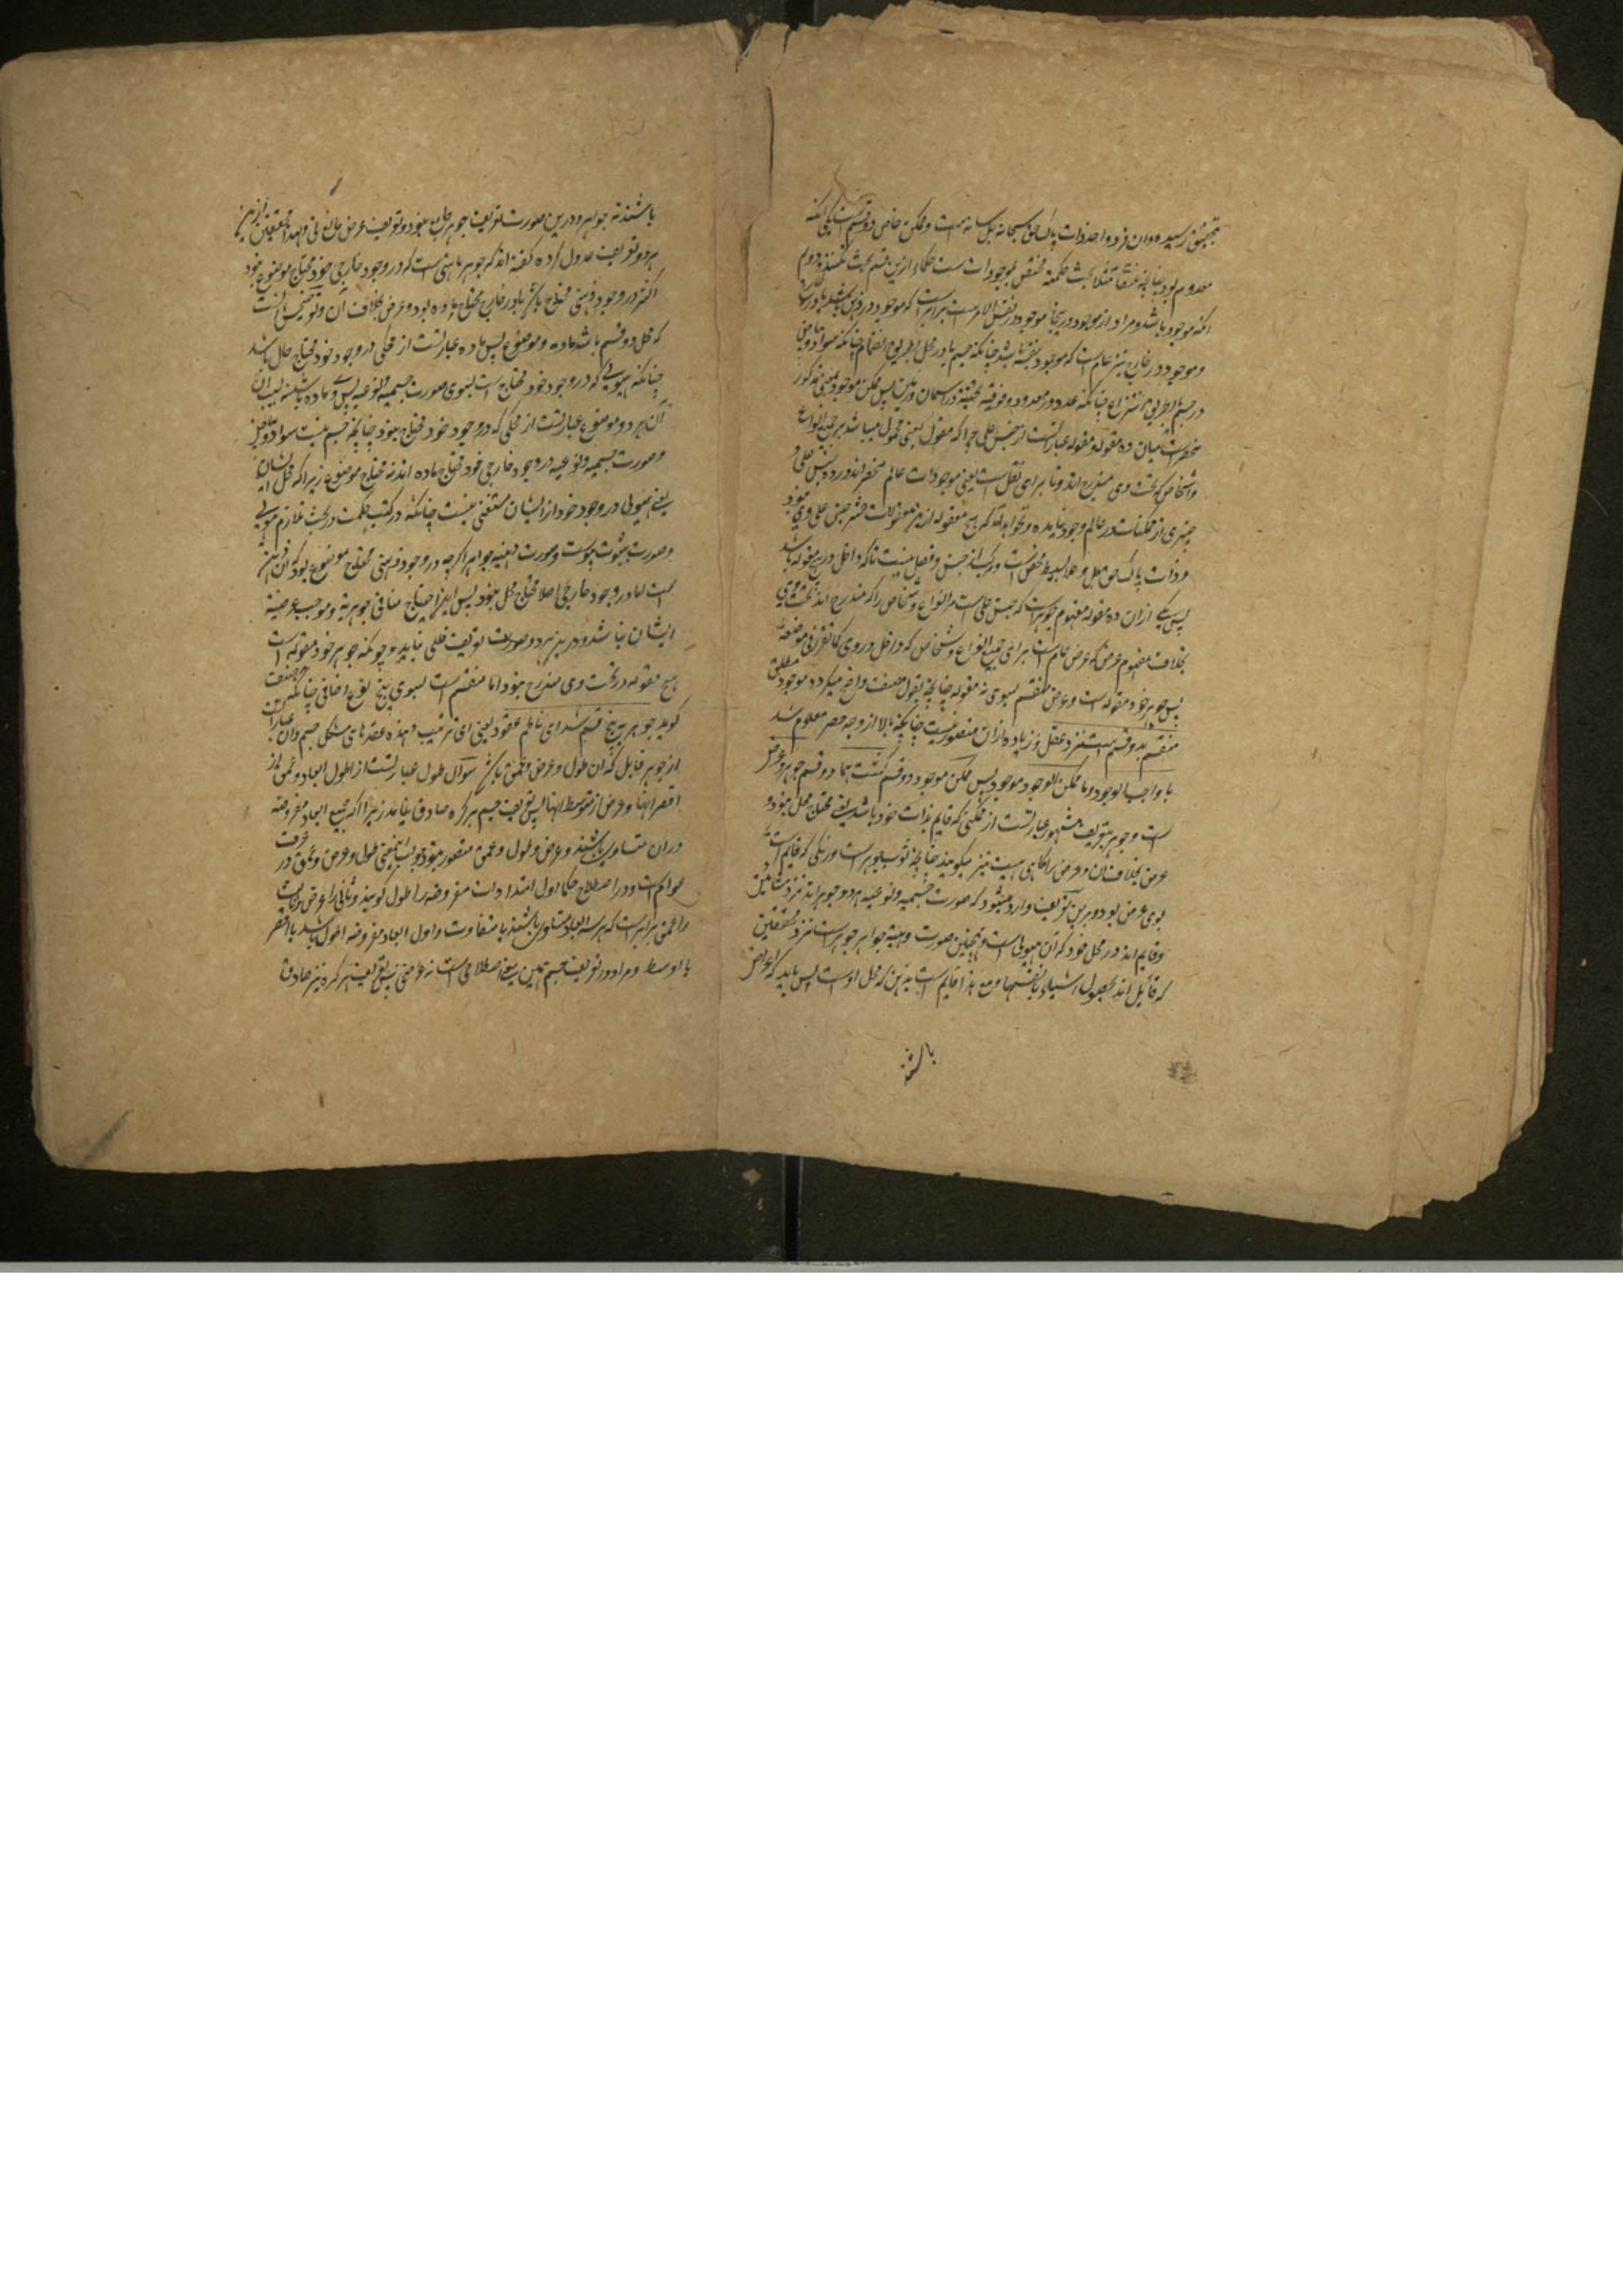 بتحقیق رسیده و ان فرد واحد ذات پاک حق سبحانه جل شانه هست و ممکن خاص دو قسم است یکی انکه
معدوم بود چنانچه عنقا مثلا بحث حکمة مختص بموجودات ست حکماء ازین قسم بحث نکنند دوم
انکه موجود باشد و مراد از موجود درینجا موجود در نفس الامر ست برابرست که موجود در ذهن باشد یا در خارج
و موجود در خارج نیز عام است که موجود بنفسه باشد چنانکه جسم یا در محل بطریق انضمام چنانکه سواد و بیاض
در جسم یا بطریق انتزاع چنانکه عدد در معدود و فوقیة تحتیة در آسمان و زمین پس ممکن موجود بمعنی مذکور
منحصر است میان ده مقوله و مقوله عبارتست از جنس عالی چرا که مقول بمعنی محمول میباشد بر جمیع انواع
و اشخاص که تحت وی مندرج اند و تا برای نقل است یعنی موجودات عالم منحصر اند در ده جنس عالی و
چیزی از ممکنات در عالم وجود نیامده و نخواهد آمد که هیچ مقوله از مقولات عشر جنس عالی وی نبود
و ذات پاک حق جل و علا بسیط محض است و مرکب از جنس و فصل نیست تا که داخل در هیچ مقوله باشد
پس یکی ازان ده مقوله مفهوم جوهر است که جنس عالی است مر انواع و اشخاص را که مندرج اند تحت وی
بخلاف مفهوم عرض که عرض عام است برای جمیع انواع و اشخاص که داخل در وی کما تقرر فی موضعه
پس جوهر خود مقوله است و عرض منقسم بسوی نه مقوله چنانچه بقول مصنف واضح میگردد موجود مطلق
منقسم بدو قسم است نزد عقل و زیاده ازان متصور نیست چنانچه بالا از وجه حصر معلوم شد
یا واجب الوجود و یا ممکن الوجود موجود پس ممکن موجود دو قسم گشت بنا دو قسم جوهر و عرض
است و جوهر بتعریف مشهور عبارتست از ممکنی که قایم بذات خود باشد یعنی محتاج محل نبود و
عرض بخلاف ان و عرض را گاهی هیئت نیز میگویند چنانچه ثوب جوهر است و رنگی که قایم است
بوی عرض بود و برین تعریف وارد میشود که صورت جسمیه و نوعیه هر دو جوهر اند نزد مشائین
و قایم اند در محل خود که آن هیولی است و همچنین صورت ذهنیة جواهر جوهر است نزد محققین
که قایل اند بحصول اشیاء بانفسها و مع هذا قایم است بذهن که محل اوست پس باید که اعراض
باشند
باشند نه جواهر و درین صورت تعریف جوهر جامع نبود و تعریف عرض مانع نی و لهذا محققین ازین
هر دو تعریف عدول کرده گفته اند که جوهر ماهیتی ست که در وجود خارجی خود محتاج موضوع نبود
اگرچه در وجود ذهنی محتاج باشد یا در خارج محتاج ماده بود و عرض بخلاف آن و توضیحش انست
که محل دو قسم باشد ماده و موضوع پس ماده عبارتست از محلی که در وجود خود محتاج حال باشد
چنانکه هیولی که در وجود خود محتاج است بسوی صورت جسمیه و نوعیه پس وی ماده باشد نسبت بان
آن هر دو و موضوع عبارتست از محلی که در وجود خود محتاج نبود چنانچه جسم نسبت سواد و بیاض
و صورت جسمیه و نوعیه در وجود خارجی خود محتاج ماده اند نه محتاج موضوع زیرا که محل ایشان
یعنی هیولی در وجود خود از ایشان مستغنی نیست چنانکه در کتب حکمت در بحث تلازم هیولی
و صورت بثبوت پیوست و صورت ذهنیه جواهر اگرچه در وجود ذهنی محتاج موضوع بود که آن ذهن
است اما در وجود خارجی اصلا محتاج محل نبود پس این احتیاج منافی جوهریة و موجب عرضیة
ایشان نباشد و در هر دو صورت تعریف خللی نیاید و چونکه جوهر خود مقوله است
هیچ مقوله در تحت وی مندرج نبود اما منقسم است بسوی پنج نوع اضافی چنانکه مصنف
گوید جوهر به پنج قسم شد ای ناظم عقود یعنی ای ترتیب دهنده عقدهای مشکل جسم و ان عبارت
از جوهر قابل که ان طول و عرض و عمق باشد سوال طول عبارتست از اطول ابعاد و عمق از
اقصر انها و عرض از متوسط انها پس تعریف جسم بر کره صادق نیامد زیرا که جمیع ابعاد مفروضه
دران متساوی باشند و عرض و طول و عمق متصور نبود جواب این معنی طول و عرض و عمق در عرف
عوام است و در اصطلاح حکما اول امتدادات مفروضه را طول گویند و ثانی را عرض و ثالث
را عمق برابرست که هر سه ابعاد متساوی باشند یا متفاوت و اول ابعاد مفروضه اطول باشد یا اقصر
یا اوسط و مراد در تعریف جسم همین معنی اصطلاحی ست نه عرفی پس تعریف بر کره نیز صادق